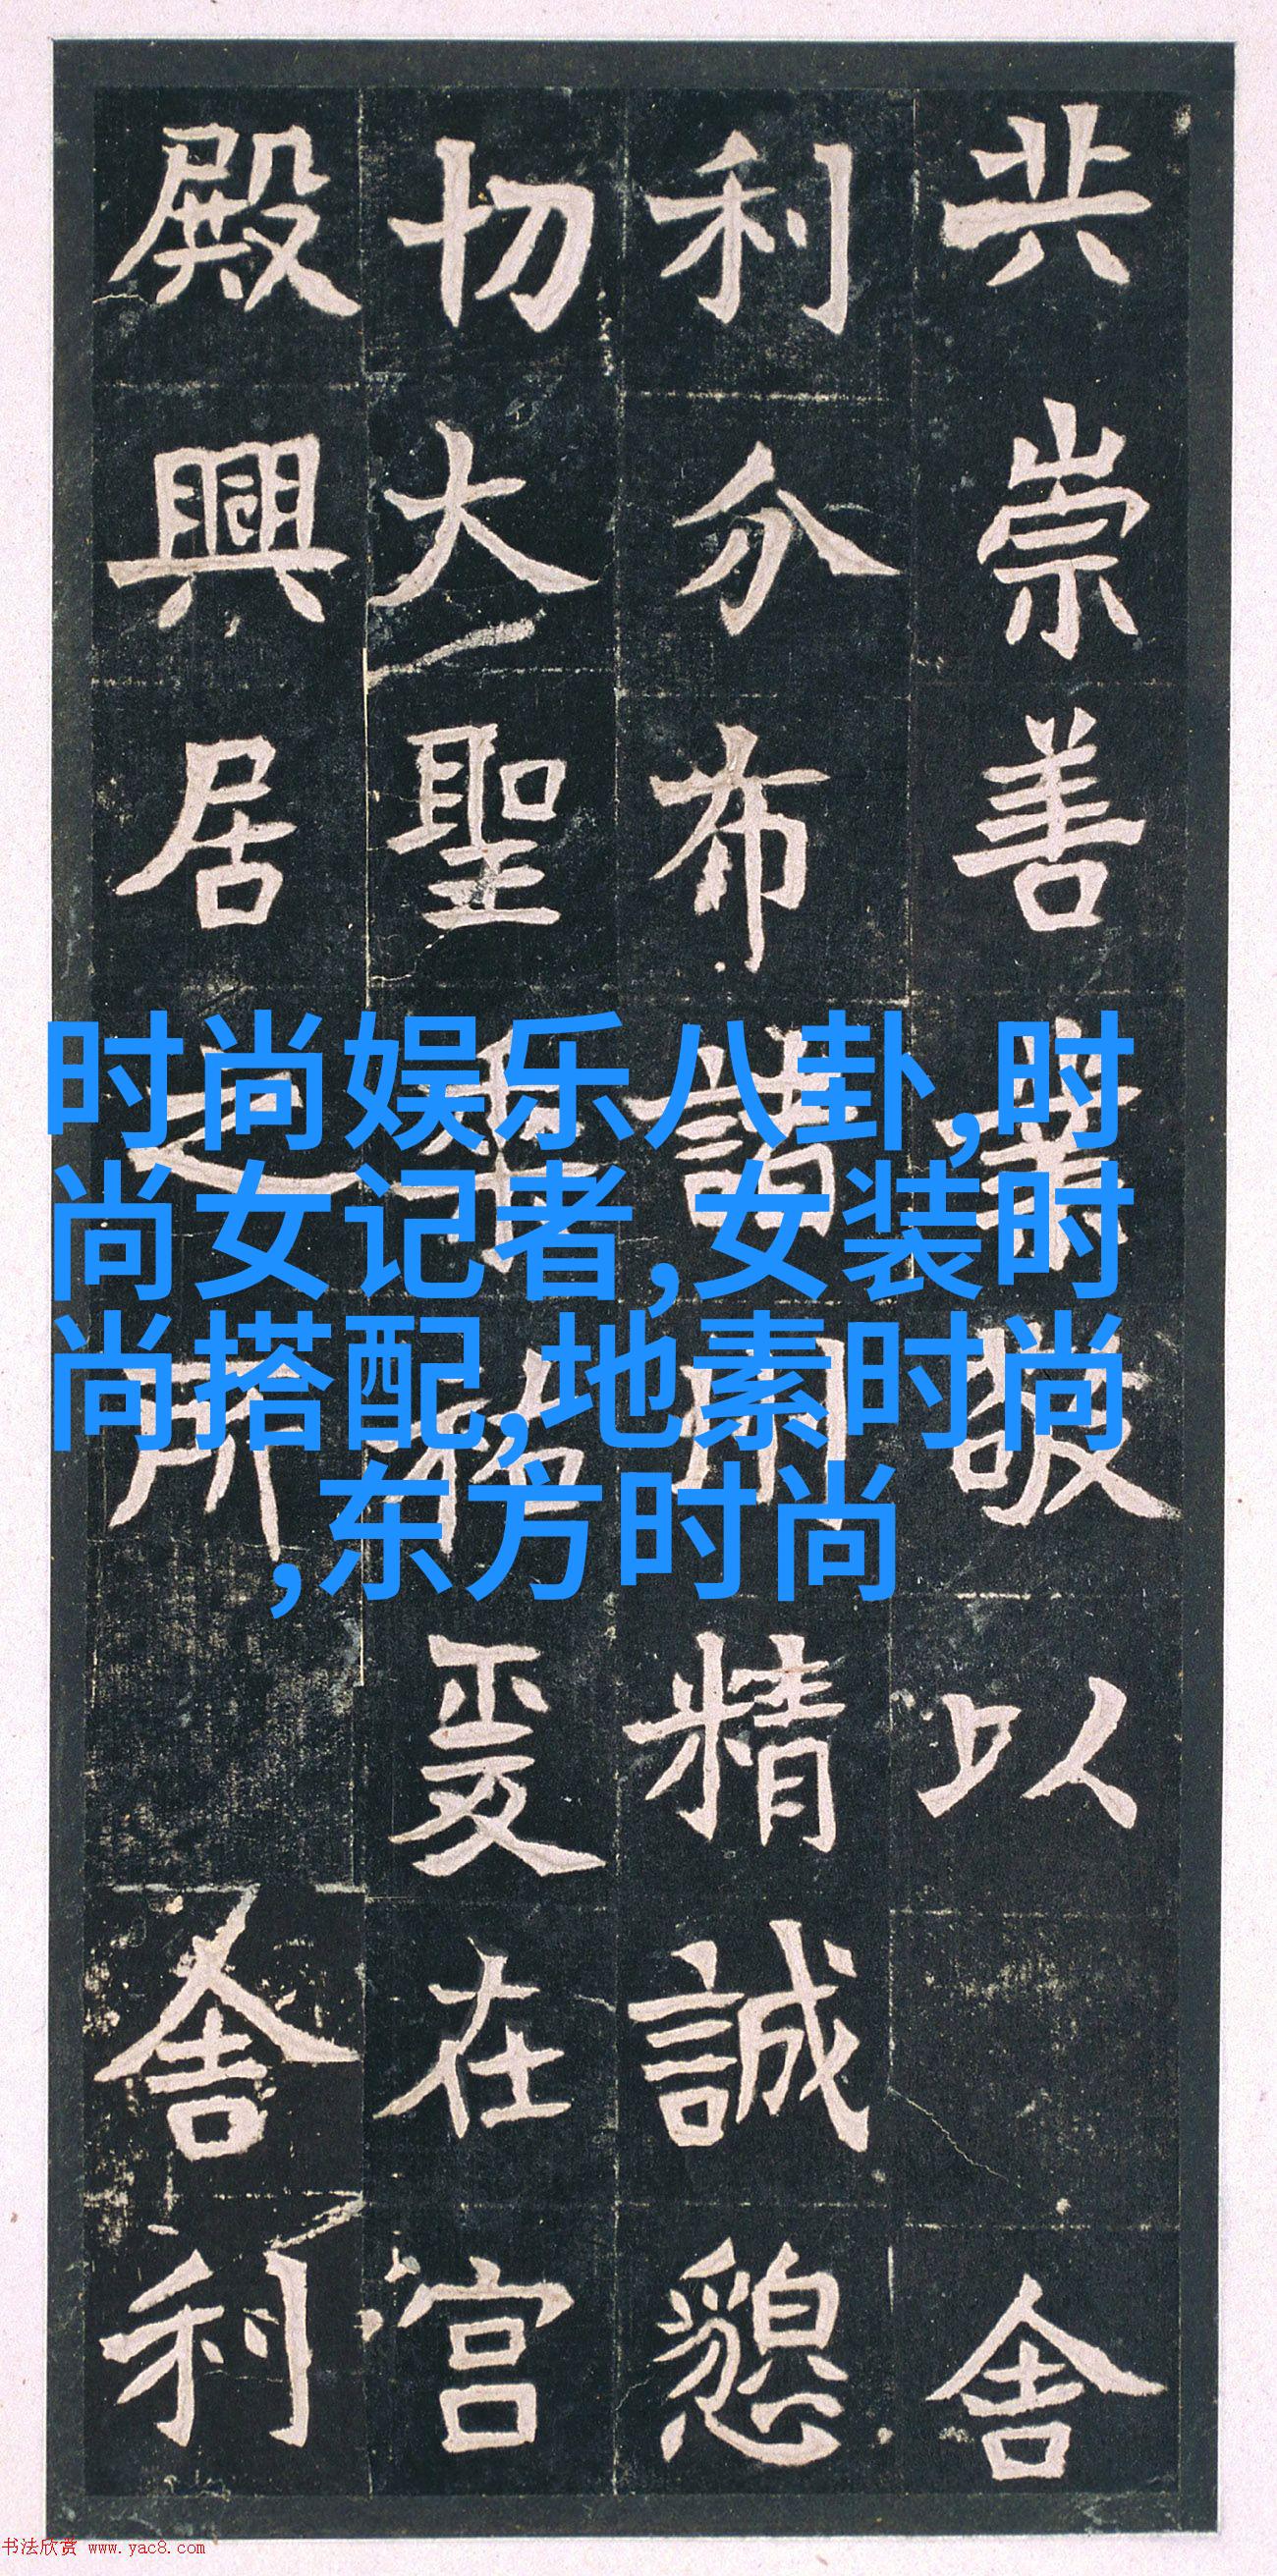 共崇善業敬以舍
利分布諸州精誠懇
切大聖垂祐爰在宮
殿興居之所舍利
时尚娱乐八卦,时
尚女记者,女装时
尚搭配,地素时尚
,东方时尚
书法欣赏 www.yac8.com